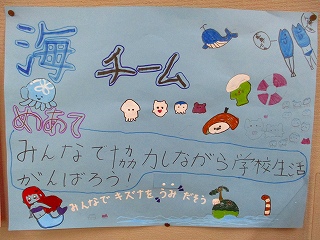 海
チーム
めあて
みんなで協力しながら学校生活
がんばろう!
みんなでキズナをうみだそう